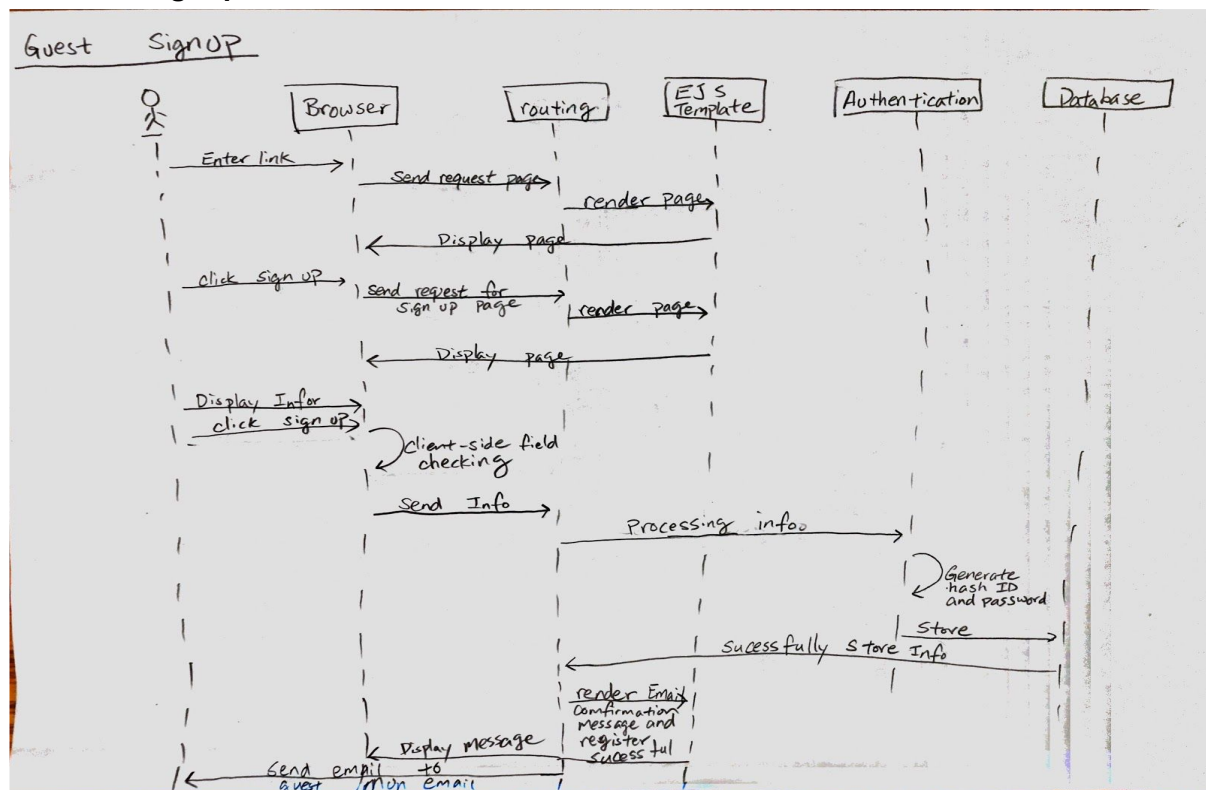 Guest SignUP
Browser
routing
EJS
Template
Authentication
Database
Enter link
Send request page
render page
Display page
click sign up
send request for
sign up page
render page
Display page
Display Infor
click sign up
Client-side field
checking
Send Info
Processing info.
Generate
hash ID
and password
Store
Sucessfully Store Info
render Email
Comfirmation
Message and
register
sucessful
Display message
Send email to
guest email